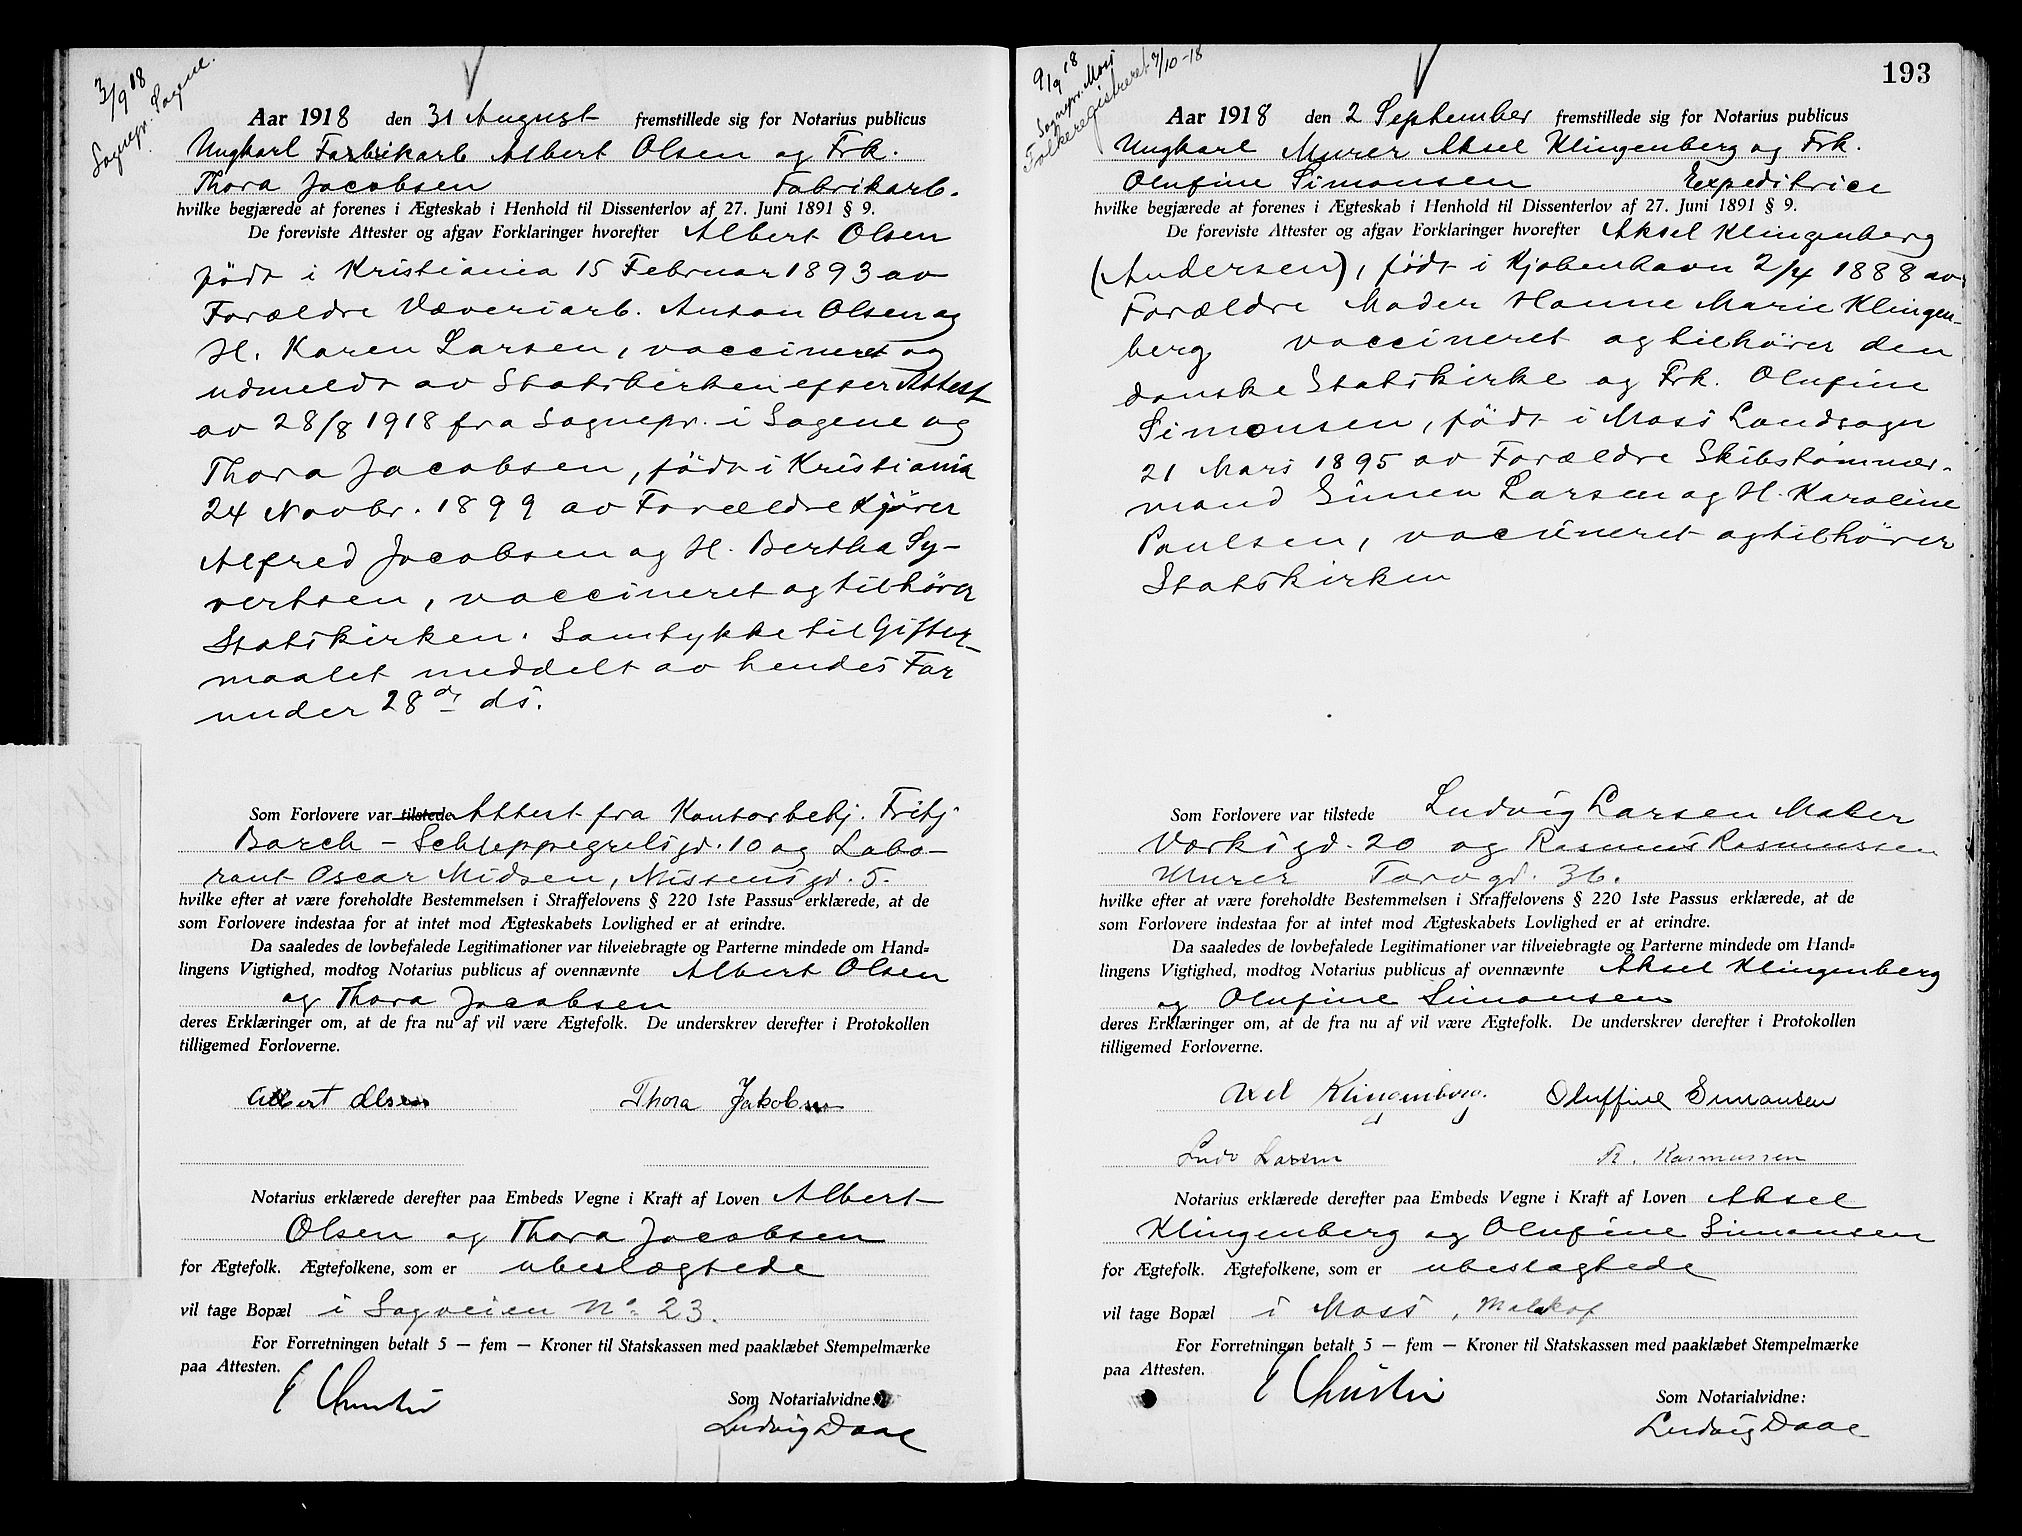 3/9 18
Sognepr. Sagene.
Aar 1918 den 31 August fremstillede sig for Notarius publicus
Ungkarl Fabrikarb Albert Olsen og Frk.
Thora Jacobsen Fabrikarb.
hvilke begjærede at forenes i Ægteskab i Henhold til Dissenterlov af 27. Juni 1891 § 9.
De foreviste Attester og afgav Forklaringer hvorefter Albert Olsen
født i Kristiania 15 Februar 1893 av
Forældre Væveriarb. Anton Olsen og
H. Karen Larsen, vaccineret og
udmeldt av Statskirken efter Attest
av 28/8 1918 fra Sognepr. i Sagene og
Thora Jacobsen, født i Kristiania
24 Novbr. 1899 av Forældre Kjører
Alfred Jacobsen og H. Bertha Sy-
vertsen, vaccineret og tilhører
Statskirken. Samtykke til Gifter-
maalet meddelt av hendes Far
under 28de ds.
Som Forlovere var tilstede Attest fra Kontorbetj. Fritj
Borch - Schleppegrelsgd. 10 og Labo-
rant Oscar Midsen, Nissensgd. 5.
hvilke efter at være foreholdte Bestemmelsen i Straffelovens § 220 1ste Passus erklærede, at de
som Forlovere indestaa for at intet mod Ægteskabets Lovlighed er at erindre.
Da saaledes de lovbefalede Legitimationer var tilveiebragte og Parterne mindede om Hand-
lingens Vigtighed, modtog Notarius publicus af ovennævnte Albert Olsen
og Thora Jacobsen
deres Erklæringer om, at de fra nu af vil være Ægtefolk. De underskrev derefter i Protokollen
tilligemed Forloverne.
Albert Olsen Thora Jakobsen
Notarius erklærede derefter paa Embeds Vegne i Kraft af Loven Albert
Olsen og Thora Jacobsen
for Ægtefolk. Ægtefolkene, som er ubeslægtede
vil tage Bopæl i Sagveien No 23.
For Forretningen betalt 5 — fem — Kroner til Statskassen med paaklæbet Stempelmærke
paa Attesten.
E Christie
Som Notarialvidne:
Ludvig Daae
193
9/9 18
Sognepr. Moss
Folkeregistreret 7/10-18
Aar 1918 den 2 September fremstillede sig for Notarius publicus
Ungkarl Murer Aksel Klingenberg og Frk.
Olufine Simonsen Expeditrice
hvilke begjærede at forenes i Ægteskab i Henhold til Dissenterlov af 27. Juni 1891 § 9.
De foreviste Attester og afgav Forklaringer hvorefter Aksel Klingenberg
(Andersen), født i Kjøbenhavn 2/4 1888 av
Forældre Moder Hanne Marie Klingen-
berg vaccineret og tilhører den
danske Statskirke og Frk. Olufine
Simonsen, født i Moss Landsogn
21 Mars 1895 av Forældre Skibstømmer-
mand Simen Larsen og H. Karoline
Paulsen, vaccineret og tilhører
Statskirken
Som Forlovere var tilstede Ludvig Larsen Maler
Verksgd. 20 og Rasmus Rasmussen
Murer Torvgd. 36.
hvilke efter at være foreholdte Bestemmelsen i Straffelovens § 220 1ste Passus erklærede, at de
som Forlovere indestaa for at intet mod Ægteskabets Lovlighed er at erindre.
Da saaledes de lovbefalede Legitimationer var tilveiebragte og Parterne mindede om Hand-
lingens Vigtighed, modtog Notarius publicus af ovennævnte Aksel Klingenberg
og Olufine Simonsen
deres Erklæringer om, at de fra nu af vil være Ægtefolk. De underskrev derefter i Protokollen
tilligemed Forloverne.
Axel Klingenberg. Oluffine Simonsen
Ludv Larsen R. Rasmussen
Notarius erklærede derefter paa Embeds Vegne i Kraft af Loven Aksel
Klingenberg og Olufine Simonsen
for Ægtefolk. Ægtefolkene, som er ubeslægtede
vil tage Bopæl i Moss, Malakof
For Forretningen betalt 5 — fem — Kroner til Statskassen med paaklæbet Stempelmærke
paa Attesten.
E Christie
Som Notarialvidne:
Ludvig Daae